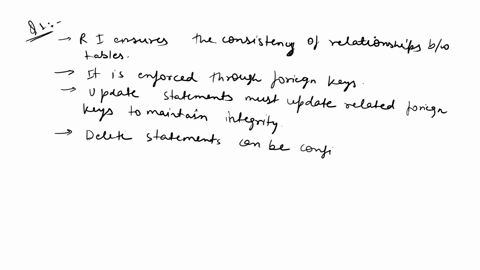 Q1:-
→ R I ensures the consistency of relationships b/w
tables.
→ It is enforced through foreign keys.
→ update statements must update related foreign
keys to maintain integrity.
→ Delete statements can be confi